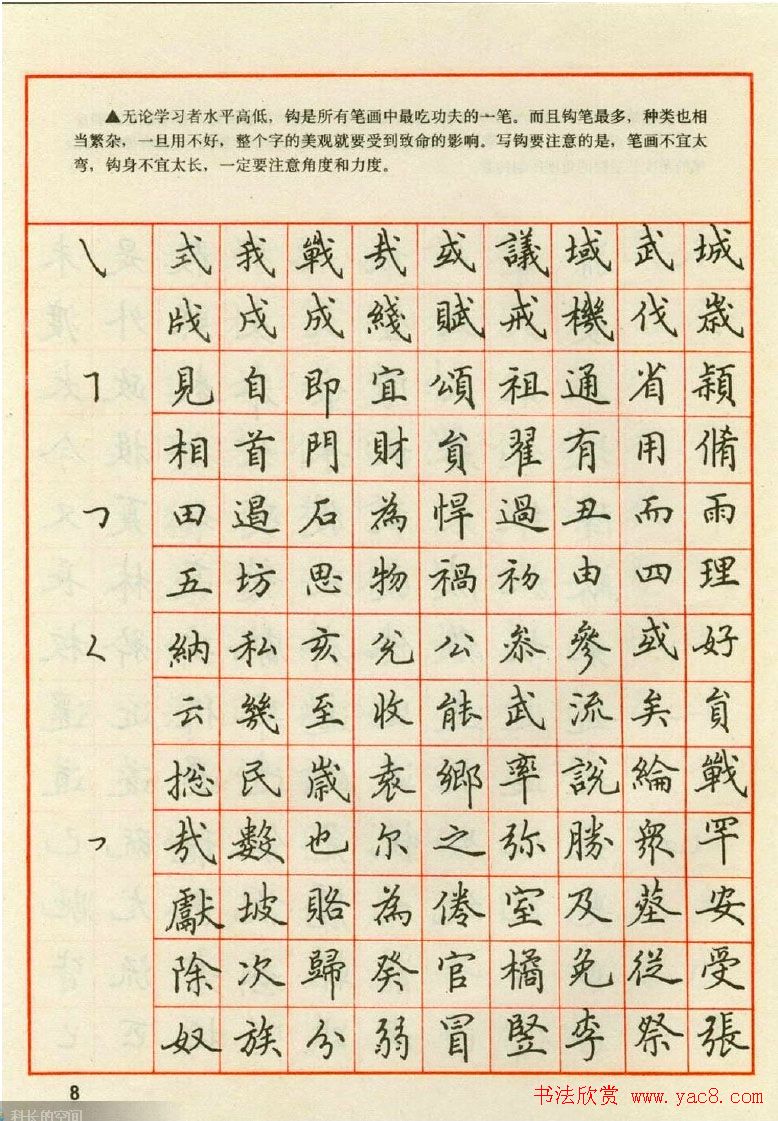 ▲无论学习者水平高低，钩是所有笔画中最吃功夫的一笔。而且钩笔最多，种类也相
当繁杂，一旦用不好，整个字的美观就要受到致命的影响。写钩要注意的是，笔画不宜太
弯，钩身不宜太长，一定要注意角度和力度。
式我戰哉或議域武城
戌成綫賦戒機伐歲
見自即宜頌祖通省潁
相首門財負翟有用脩
田遏石為悍過丑而雨
五坊思物禍初由四理
納私亥兊公叅參或好
云幾至收能武流矣負
揔民歲袁鄉率說綸戰
哉數也尔之弥勝眾罕
獻坡賂為倦室及墓安
除次歸癸官橘免從受
奴族分弱冒竪李祭張
8
书法欣赏 www.yac8.com
科长的空间